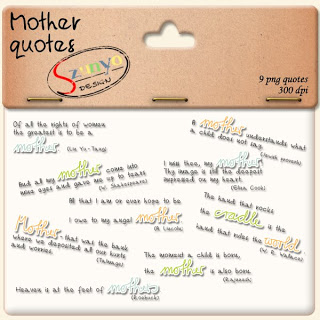 Mother
quotes
Szinyo
DESIGN
9 png quotes
300 dpi
Of all the rights of women
the greatest is to be a
mother
(Lin Yu-Tang)
A mother understands what
a child does not say.
(Jewish proverb)
And all my mother came into
mine eyes and gave me up to tears
(W. Shakespeare)
I see thee, my mother
Thy image is still the deepest
impressed on my heart.
(Eliza Cook)
All that I am or ever hope to be
I owe to my angel mother
(A. Lincoln)
The hand that rocks
the cradle is the
hand that rules the world.
(W. R. Wallace)
Mother, that was the bank
where we deposited all our hurts
and worries.
(Talmage)
The moment a child is born,
the mother is also born.
(Rajneesh)
Heaven is at the feet of mothers
(Roebuck)